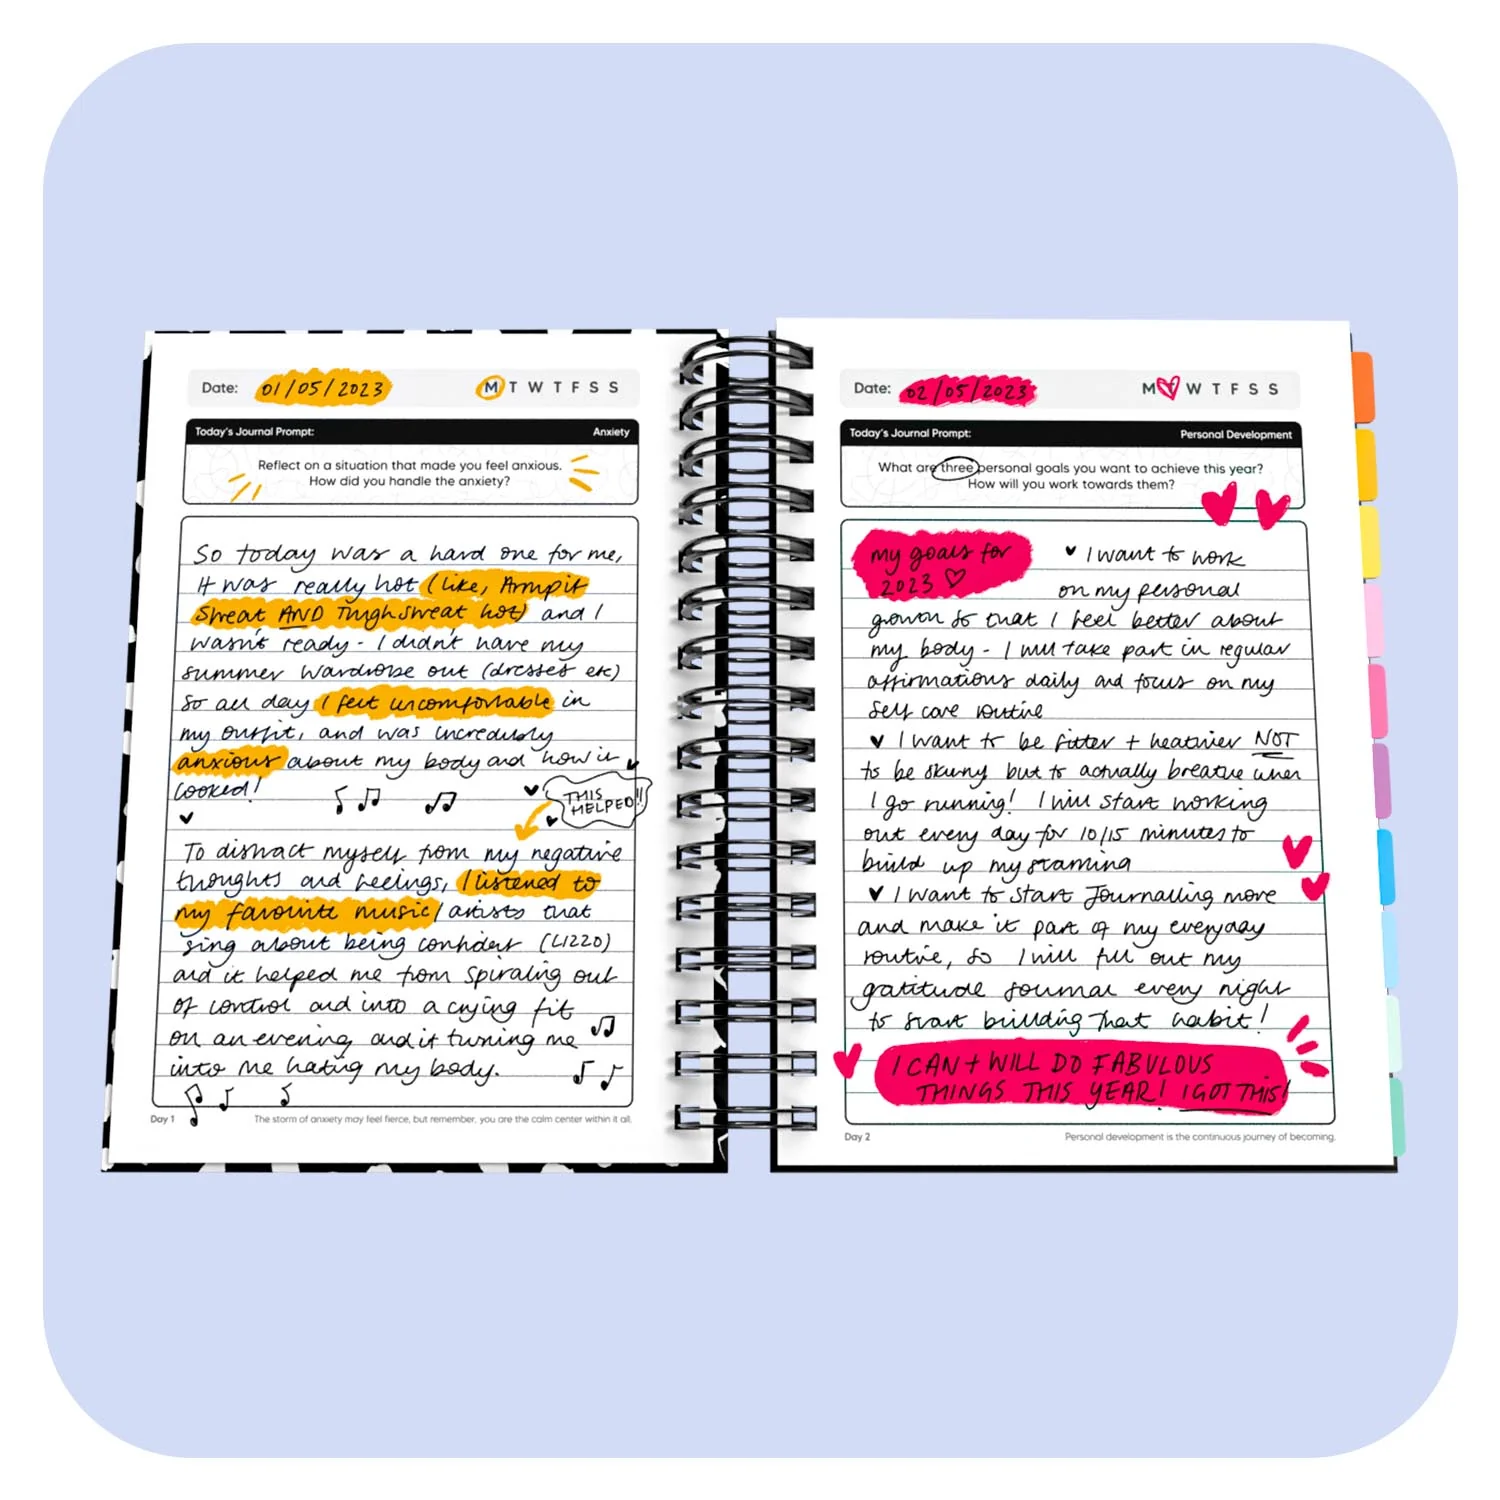 Date: 01/05/2023 M T W T F S S
Today's Journal Prompt: Anxiety
Reflect on a situation that made you feel anxious.
How did you handle the anxiety?
So today was a hard one for me,
it was really hot (like, Armpit
Sweat AND Thigh sweat hot) and I
wasn't ready - I didn't have my
summer wardrobe out (dresses etc)
so all day I felt uncomfortable in
my outfit, and was incredibly
anxious about my body and how it
looked!
THIS
HELPED!!
To distract myself from my negative
thoughts and feelings, I listened to
my favourite music/artists that
sing about being confident (LIZZO)
and it helped me from spiraling out
of control and into a crying fit
on an evening and it turning me
into me hating my body.
Day 1 The storm of anxiety may feel fierce, but remember, you are the calm center within it all.
Date: 02/05/2023 M T W T F S S
Today's Journal Prompt: Personal Development
What are three personal goals you want to achieve this year?
How will you work towards them?
my goals for
2023
I want to work
on my personal
growth so that I feel better about
my body - I will take part in regular
affirmations daily and focus on my
self care routine
I want to be fitter + healthier NOT
to be skinny but to actually breathe when
I go running! I will start working
out every day for 10/15 minutes to
build up my stamina
I want to start Journalling more
and make it part of my everyday
routine, so I will fill out my
gratitude journal every night
to start building that habit!
I CAN + WILL DO FABULOUS
THINGS THIS YEAR! I GOT THIS!
Day 2 Personal development is the continuous journey of becoming.